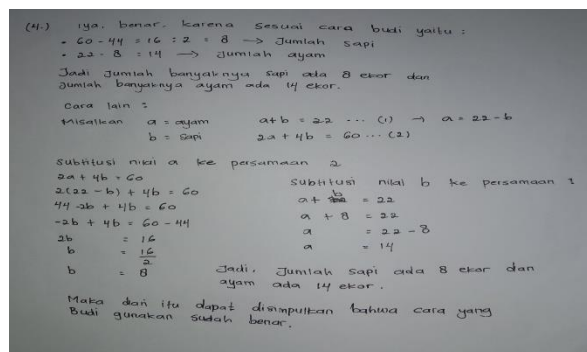 (4.) iya, benar. karena sesuai cara budi yaitu :
• 60 - 44 = 16 : 2 = 8 → Jumlah sapi
• 22 - 8 = 14 → Jumlah ayam
Jadi Jumlah banyaknya sapi ada 8 ekor dan
Jumlah banyaknya ayam ada 14 ekor.
Cara lain :
Misalkan a = ayam
b = sapi
a+b = 22 ... (1) → a = 22 - b
2a + 4b = 60 ... (2)
Subtitusi nilai a ke persamaan 2
2a + 4b = 60
2(22 - b) + 4b = 60
44 - 2b + 4b = 60
-2b + 4b = 60 - 44
2b = 16
b = 16/2
b = 8
Subtitusi nilai b ke persamaan 1
a + b = 22
a + 8 = 22
a = 22 - 8
a = 14
Jadi, Jumlah sapi ada 8 ekor dan
ayam ada 14 ekor.
Maka dari itu dapat disimpulkan bahwa cara yang
Budi gunakan sudah benar.